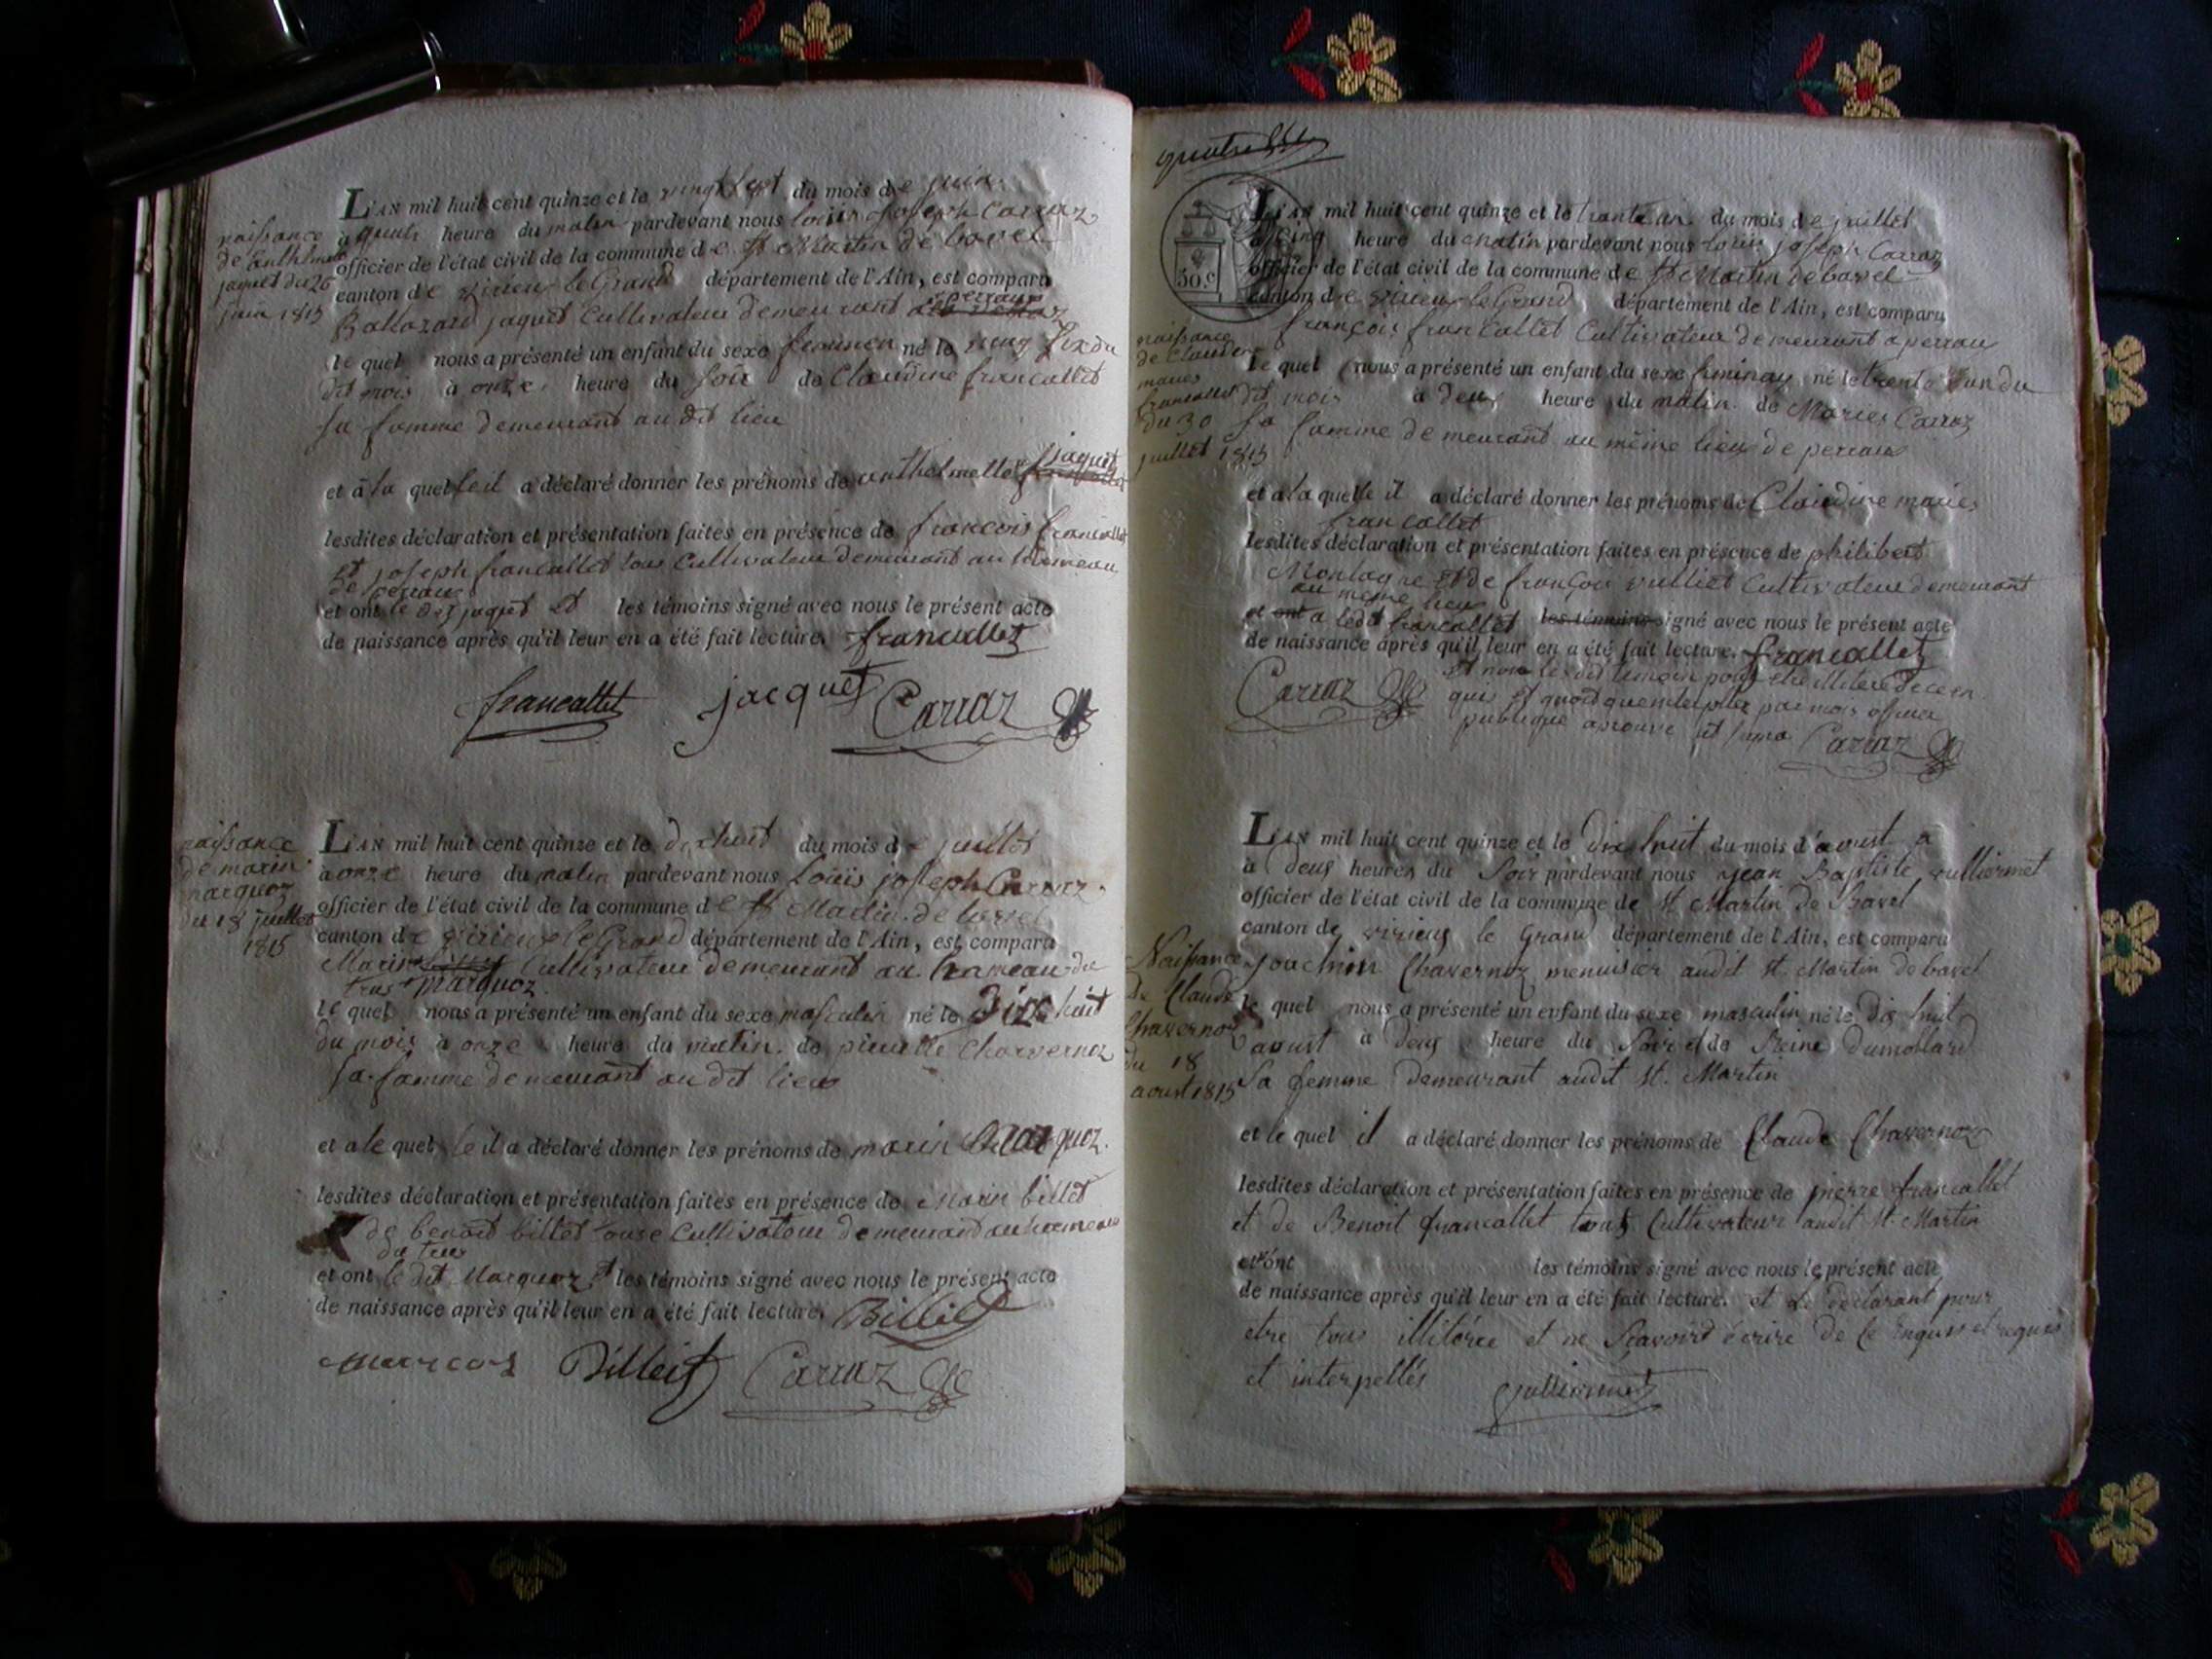 naissance
de Enthelmet
jaquet du 26
juin 1815
L'AN mil huit cent quinze et le vingt sept du mois de juin
à quatr heure du matin pardevant nous louis joseph Carraz
officier de l'état civil de la commune de st Martin de bavel
canton de virieux le Grand département de l'Ain, est comparu
perraux
Baltazard jaquet Cultivateur demeurant
le quel nous a présenté un enfant du sexe feminen né le ving six du
dit mois à onze heure du soir de Claudine francallet
sa famme demeurant au dit lieu
et à la quelle il a déclaré donner les prénoms de anthelmette jaquet
lesdites déclaration et présentation faites en présence de francois francallet
et joseph francallet tous Cultivateur demeurant au hameau
de perraux
et ont le dit jaquet et les témoins signé avec nous le présent acte
de naissance après qu'il leur en a été fait lecture. francallet
francallet jacquet Carraz
naissance
de marin
marquoz
du 18 juillet
1815
L'AN mil huit cent quinze et le dixhuit du mois de juillet
à onze heure du matin pardevant nous Louis joseph Carraz
officier de l'état civil de la commune de st Martin de bavel
canton de virieux le Grand département de l'Ain, est comparu
Marin Cultivateur demeurant au hameau du
trus marquoz
le quel nous a présenté un enfant du sexe masculin né le Dixe huit
du mois à onze heure du matin de pierrette Charvernoz
sa famme demeurant au dit lieux
et a le quel le il a déclaré donner les prénoms de marin Marquoz.
lesdites déclaration et présentation faites en présence de Marin billet
de benoit billet touse Cultivateur demeurand au hameau
du trus
et ont le dit Marquoz et les témoins signé avec nous le présent acte
de naissance après qu'il leur en a été fait lecture. Billiet
marcos Billeit Carraz
50 c
L'AN mil huit cent quinze et le trante un du mois de juillet
à Cinq heure du matin pardevant nous louis joseph Carraz
officier de l'état civil de la commune de st Martin de bavel
canton de virieux le Grand département de l'Ain, est comparu
françois francallet Cultivateur demeurant a perrau
naissance
de Claudine
maries
francallet
du 30
juillet 1815
le quel nous a présenté un enfant du sexe feminay né le trente un du
dit mois à deux heure du matin de Maries Carraz
sa famme demeurant au même lieux de perraux
et a la quelle il a déclaré donner les prénoms de Claudine maries
francallet
lesdites déclaration et présentation faites en présence de philibert
Montagne et de françois vulliet Cultivateur demeurant
au meme lieux
et ont a ledit francallet les témoins signé avec nous le présent acte
de naissance après qu'il leur en a été fait lecture. francallet
Carraz et non les dit temoin pour etre illiteré de ce en
publique aprouvé et signa Carraz
L'AN mil huit cent quinze et le Dix huit du mois d'aoust a
à Deux heures du Soir pardevant nous jean Baptiste vulliermet
officier de l'état civil de la commune de st Martin de Bavel
canton de virieux le Grand département de l'Ain, est comparu
Naissance
de Claude
Chavernoz
du 18
aoust 1815
Joachim Chavernoz menuisier audit st. Martin de bavel
le quel nous a présenté un enfant du sexe masculin né le dix huit
aoust à Deux heure du Soir et de Reine Dumollard
sa femme Demeurant audit st. Martin
et le quel il a déclaré donner les prénoms de Claude Chavernoz
lesdites déclaration et présentation faites en présence de pierre francallet
et de Benoit francallet tous Cultivateur audit st. Martin
et ont les témoins signé avec nous le présent acte
de naissance après qu'il leur en a été fait lecture. et le declarant pour
etre tous illitérée et ne Scavoird écrire de ce enquis et requis
et interpellés vulliermet